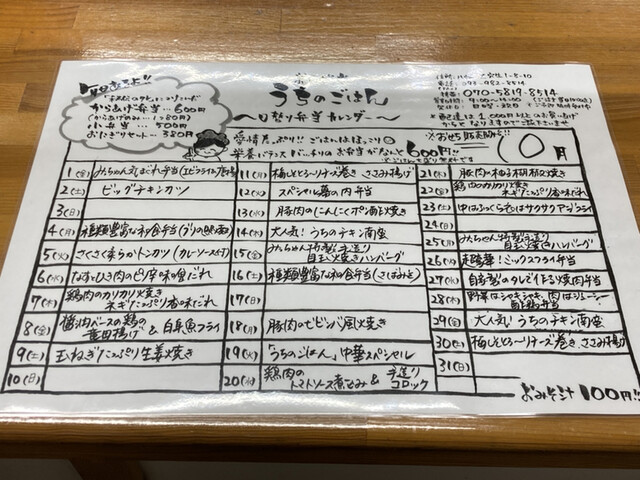 毎日あるよ!!
からあげ弁当…600円
(からあげのみ…780円)
小弁当…500円
おにぎりセット…380円
うちのごはん
~日替り弁当カレンダー~
愛情たっぷり!! ごはんはほっこり
栄養バランスバッチリのお弁当がなんと600円!!
070-5819-8514
○月
1(金) みちゃん
2(土) ビッグチキンカツ
3(日)
4(月) 種類豊富な和食弁当
5(火) さくさく柔らかトンカツ(カレーソース付)
6(水) なすとひき肉のピリ辛味噌だれ
7(木) 鶏肉のカリカリ焼き ネギたっぷり香味だれ
8(金) 醤油ベースの鶏の竜田揚げ & 白身魚フライ
9(土) 玉ねぎたっぷり生姜焼き
10(日)
11(月) 梅しそとろ~りチーズ巻き ささみ揚げ
12(火) スペシャル幕の内弁当
13(水) 豚肉のにんにくポン酢焼き
14(木) 大人気! うちのチキン南蛮
15(金) みちゃん特製手造り 目玉焼きハンバーグ
16(土) 種類豊富な和食弁当(さばみそ)
17(日)
18(月) 豚肉のビビンバ風焼き
19(火) 「うちのごはん」中華スペシャル
20(水) 鶏肉のトマトソース煮込み & 手造りコロッケ
21(木) 豚肉の柚子胡椒焼き
22(金) 鶏肉のカリカリ焼き ネギたっぷり香味だれ
23(土) 中はふっくら衣はサクサクアジフライ
24(日)
25(月) みちゃん特製手造り 目玉焼きハンバーグ
26(火) 超豪華!ミックスフライ弁当
27(水) 自家製のタレで作る焼肉弁当
28(木) 野菜はシャキシャキ、肉はジューシー
29(金) 大人気! うちのチキン南蛮
30(土) 梅しそとろ~りチーズ巻き ささみ揚げ
31(日)
おみそ汁100円!!